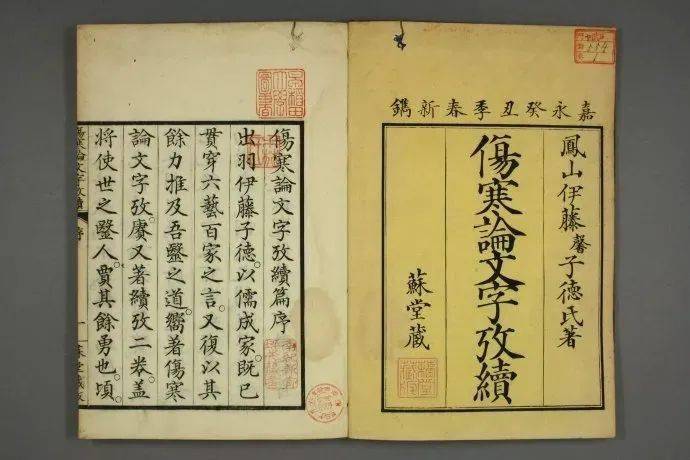 嘉永癸丑季春新鐫
鳳山伊藤馨子德氏著
傷寒論文字攷續
蘇堂藏
傷寒論文字攷續篇序
出羽伊藤子德以儒成家既已
貫穿六藝百家之言又復以其
餘力推及吾毉之道嚮著傷寒
論文字攷。賡又著續攷二卷。蓋
將使世之毉人。賈其餘勇也。頃